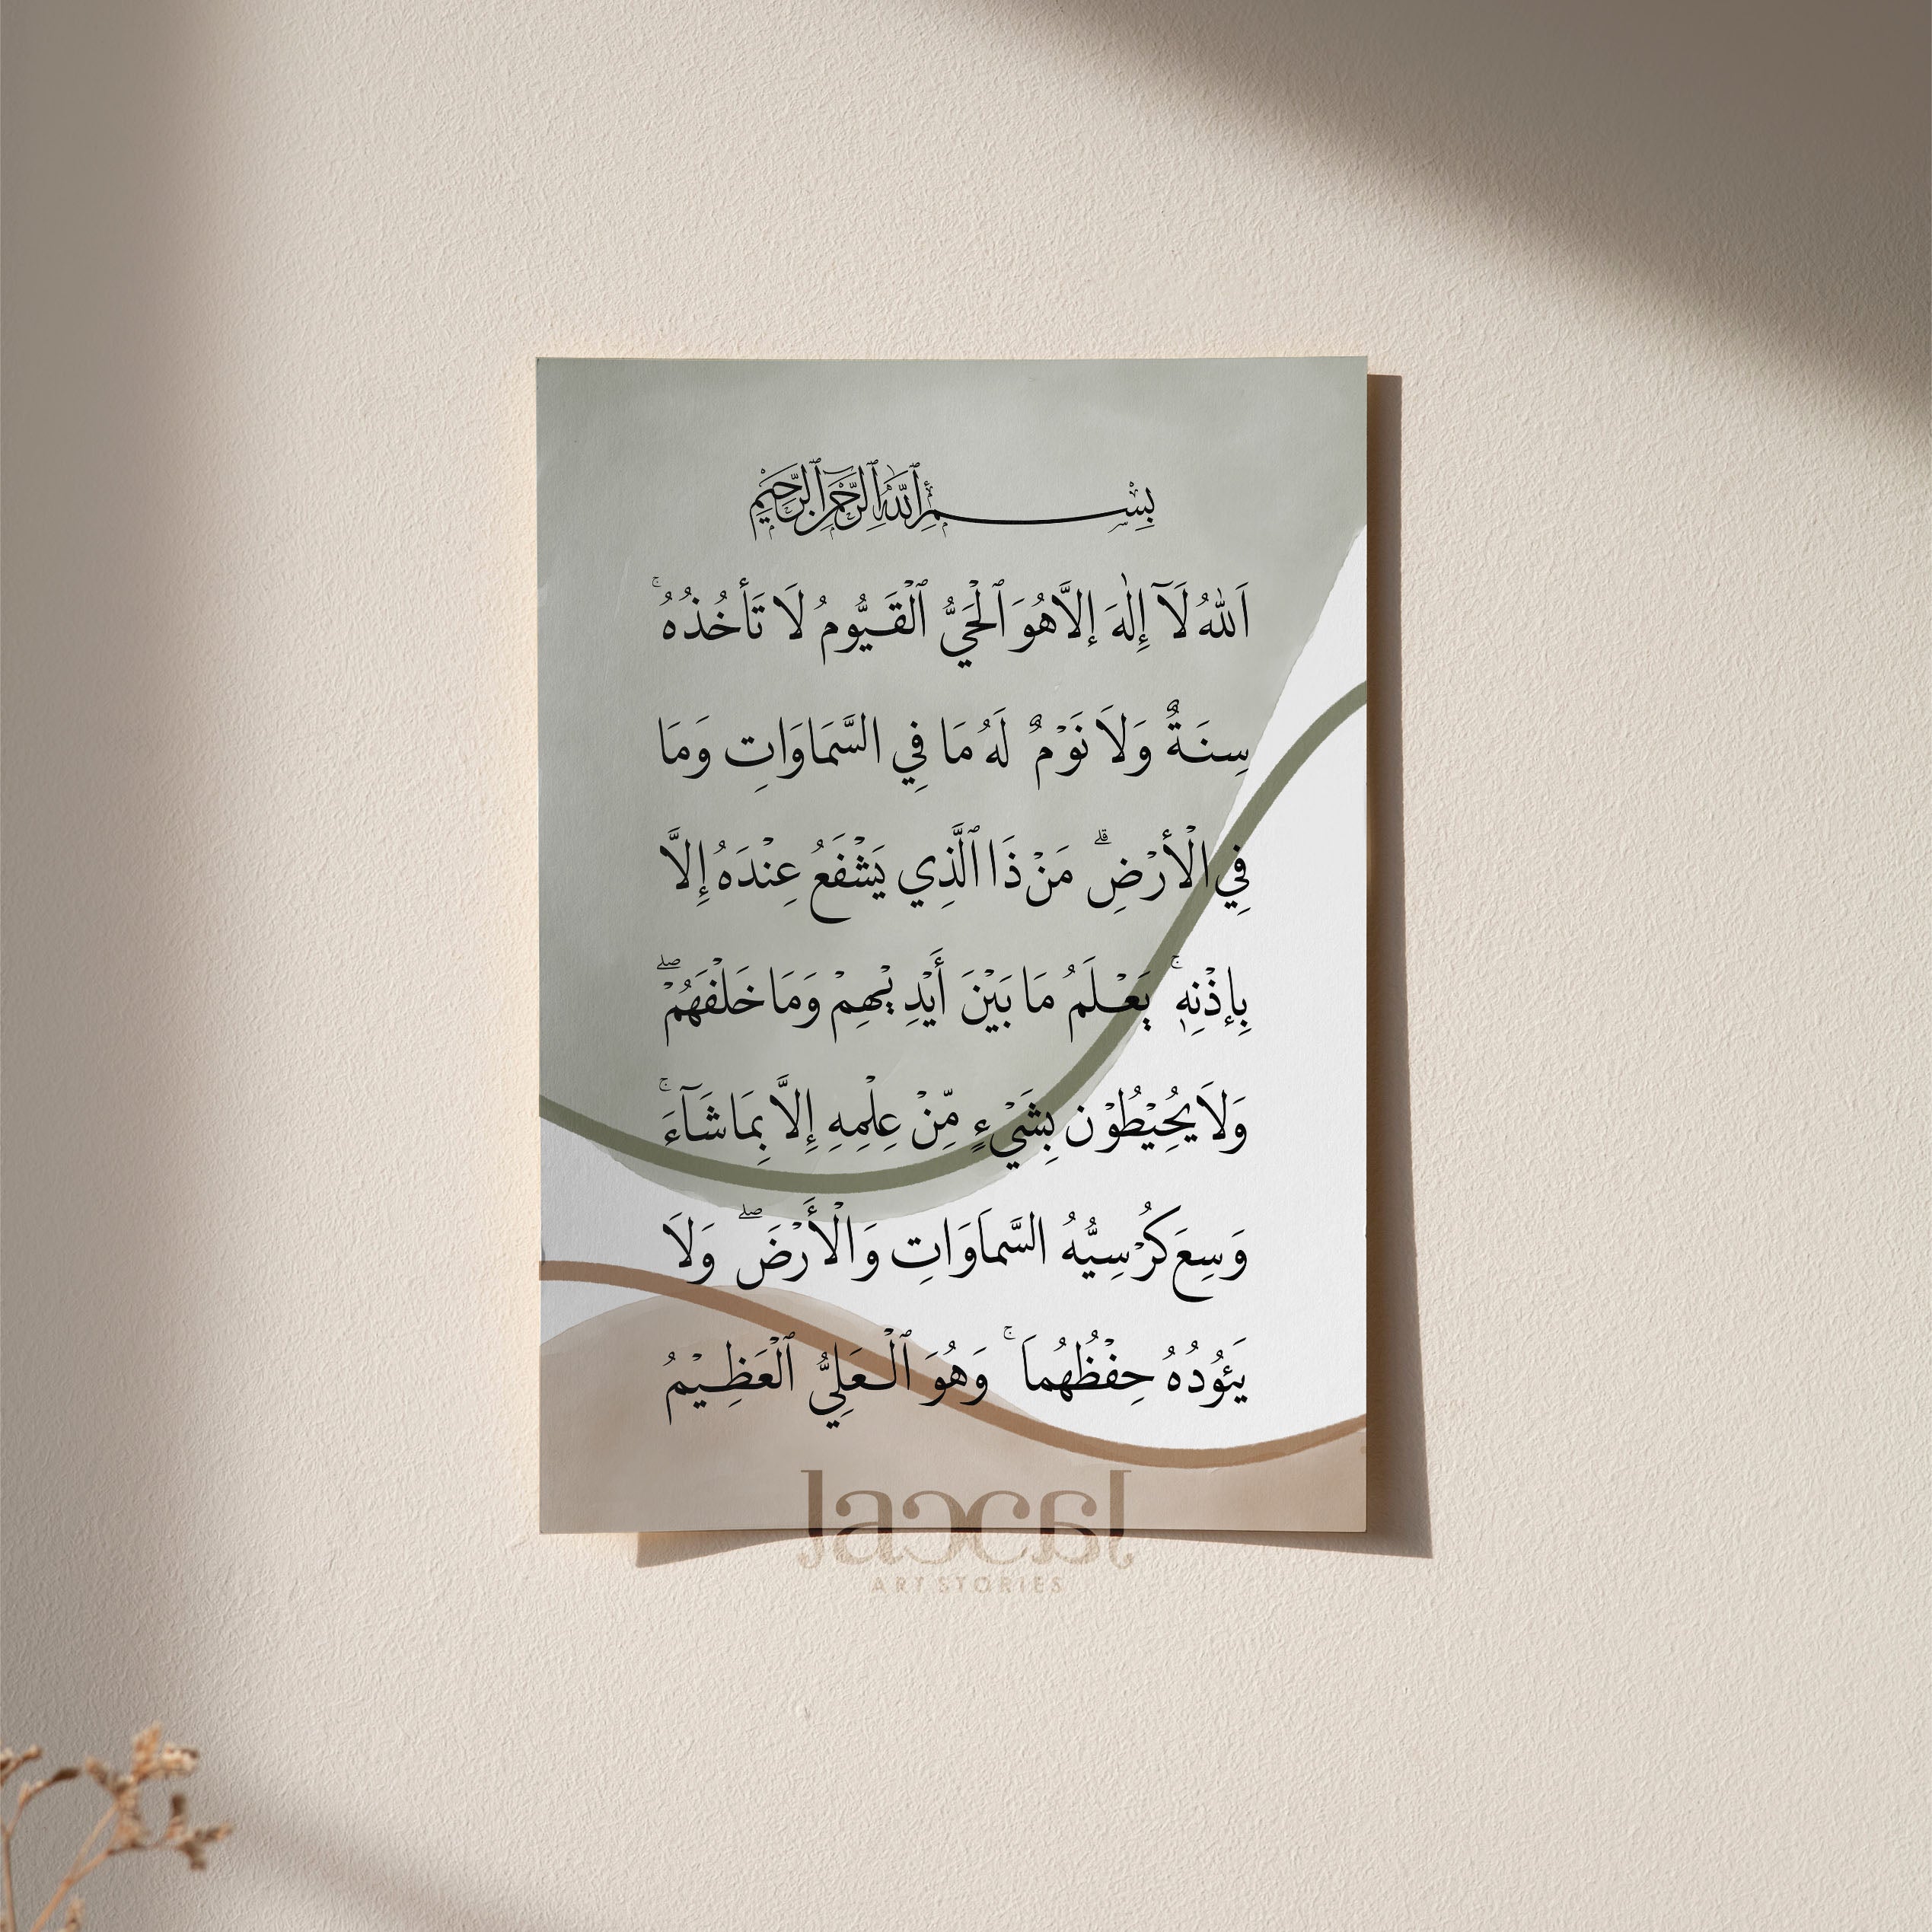 بِسْمِ ٱللَّهِ ٱلرَّحْمَٰنِ ٱلرَّحِيمِ
اَللهُ لَآ إِلٰهَ إلَّا هُوَ ٱلْحَيُّ ٱلْقَيُّومُ لَا تَأْخُذُهُ ۚ
سِنَةٌ وَلَا نَوْمٌ لَهُ مَا فِي السَّمَاوَاتِ وَمَا
فِي الْأَرْضِ ۗ مَنْ ذَا ٱلَّذِي يَشْفَعُ عِنْدَهُ إِلَّا
بِإذْنِهٖ ۚ يَعْلَمُ مَا بَيْنَ أَيْدِيْهِمْ وَمَا خَلْفَهُمْ ۖ
وَلَا يُحِيْطُوْن بِشَيْءٍ مِّنْ عِلْمِهِ إِلَّا بِمَا شَآءَ ۚ
وَسِعَ كُرْسِيُّهُ السَّمَاوَاتِ وَالْأَرْضَ ۖ وَلَا
يَئُودُهُ حِفْظُهُمَا ۚ وَهُوَ ٱلْعَلِيُّ ٱلْعَظِيْمُ
ART STORIES